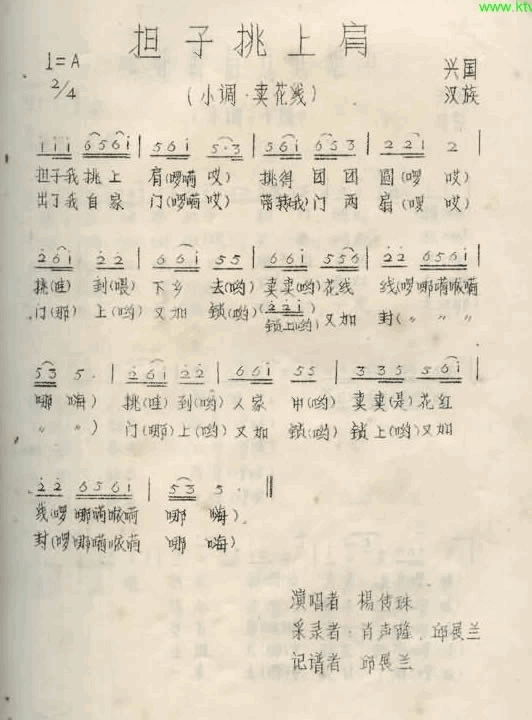 www.ktv
担子挑上肩
1=A
2/4
(小调·卖花线)
兴国
汉族
i i i 6 5 6 i | 5 6 i 5·3 | 5 6 i 6 5 3 | 2 2 i 2 |
担子我挑上 肩(啰嗬哎) 挑得 团 团 圆(啰 哎)
出了我自家 门(啰嗬哎) 带转我门 两 扇(啰 哎)
2 6 i 2 2 | 6 6 i 5 5 | 6 6 i 5 5 6 | 2 2 6 5 6 i |
挑(哇) 到(喂) 下乡 去(哟) 卖卖(哟)花线 线(啰哪嗬嗾嗬
(2 2 i)
门(那) 上(哟) 又加 锁(哟) 锁上(哟)又加 封(〃 〃 〃
5 3 5 · | 2 6 i 2 2 | 6 6 i 5 5 | 3 3 5 5 6 i |
哪 嗨) 挑(哇)到(哟) 人家 中(哟) 卖卖(是)花红
〃 〃) 门(哪)上(哟) 又加 锁(哟) 锁上(哟)又加
2 2 6 5 6 i | 5 3 5 · ‖
线(啰 哪嗬嗾嗬 哪 嗨)
封(啰哪嗬嗾嗬 哪 嗨)
演唱者 楊传珠
采录者:肖声隆、邱展兰
记谱者 邱展兰